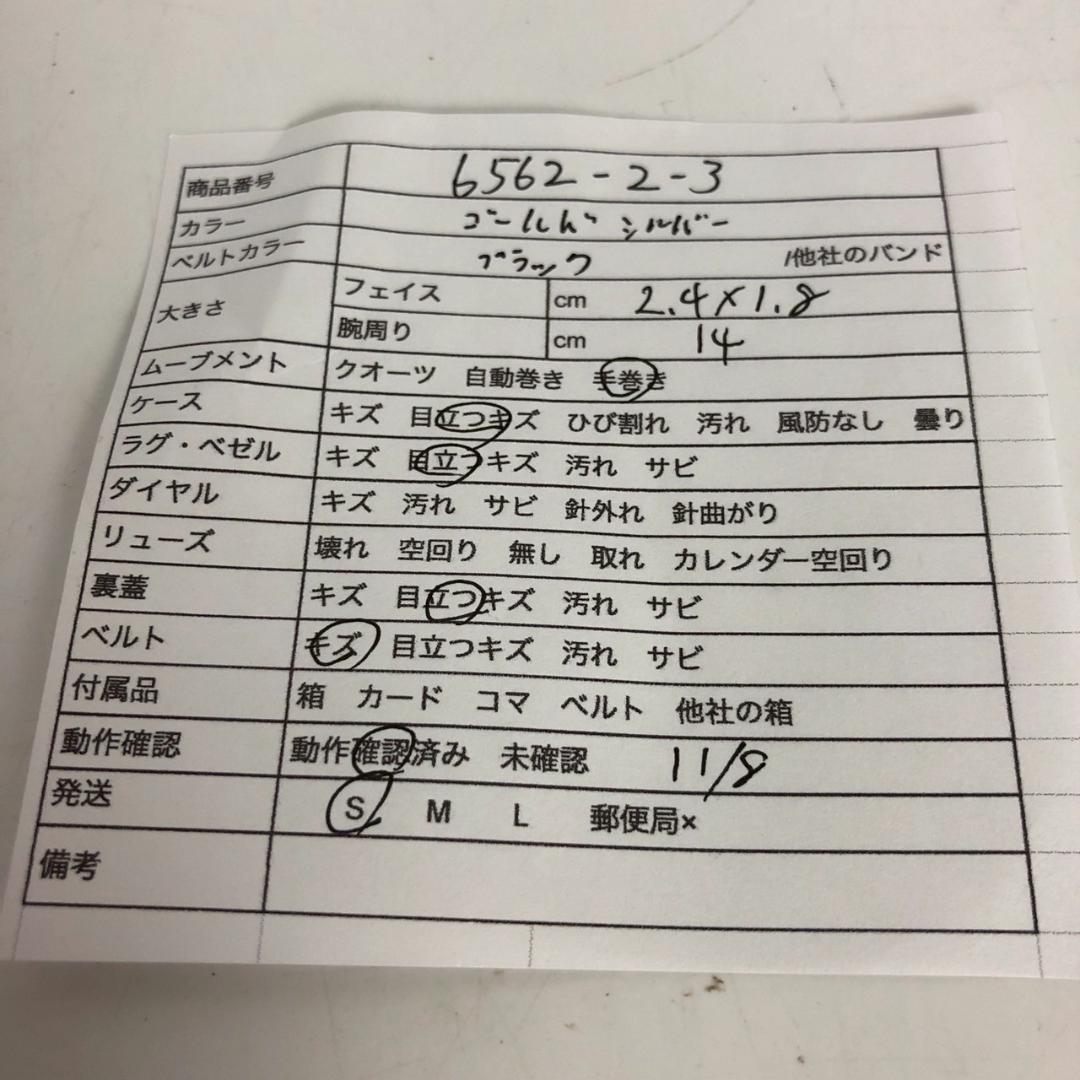 商品番号 6562-2-3
カラー ゴールド シルバー
ベルトカラー ブラック /他社のバンド
大きさ フェイス cm 2.4×1.8
腕周り cm 14
ムーブメント クオーツ 自動巻き 手巻き
ケース キズ 目立つキズ ひび割れ 汚れ 風防なし 曇り
ラグ・ベゼル キズ 目立つキズ 汚れ サビ
ダイヤル キズ 汚れ サビ 針外れ 針曲がり
リューズ 壊れ 空回り 無し 取れ カレンダー空回り
裏蓋 キズ 目立つキズ 汚れ サビ
ベルト キズ 目立つキズ 汚れ サビ
付属品 箱 カード コマ ベルト 他社の箱
動作確認 動作確認済み 未確認 11/8
発送 S M L 郵便局×
備考